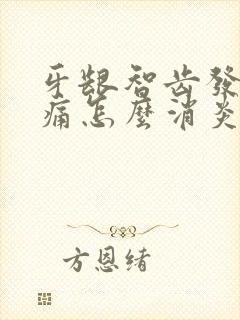 牙龈智齿發
痛怎麼消炎
方恩绪